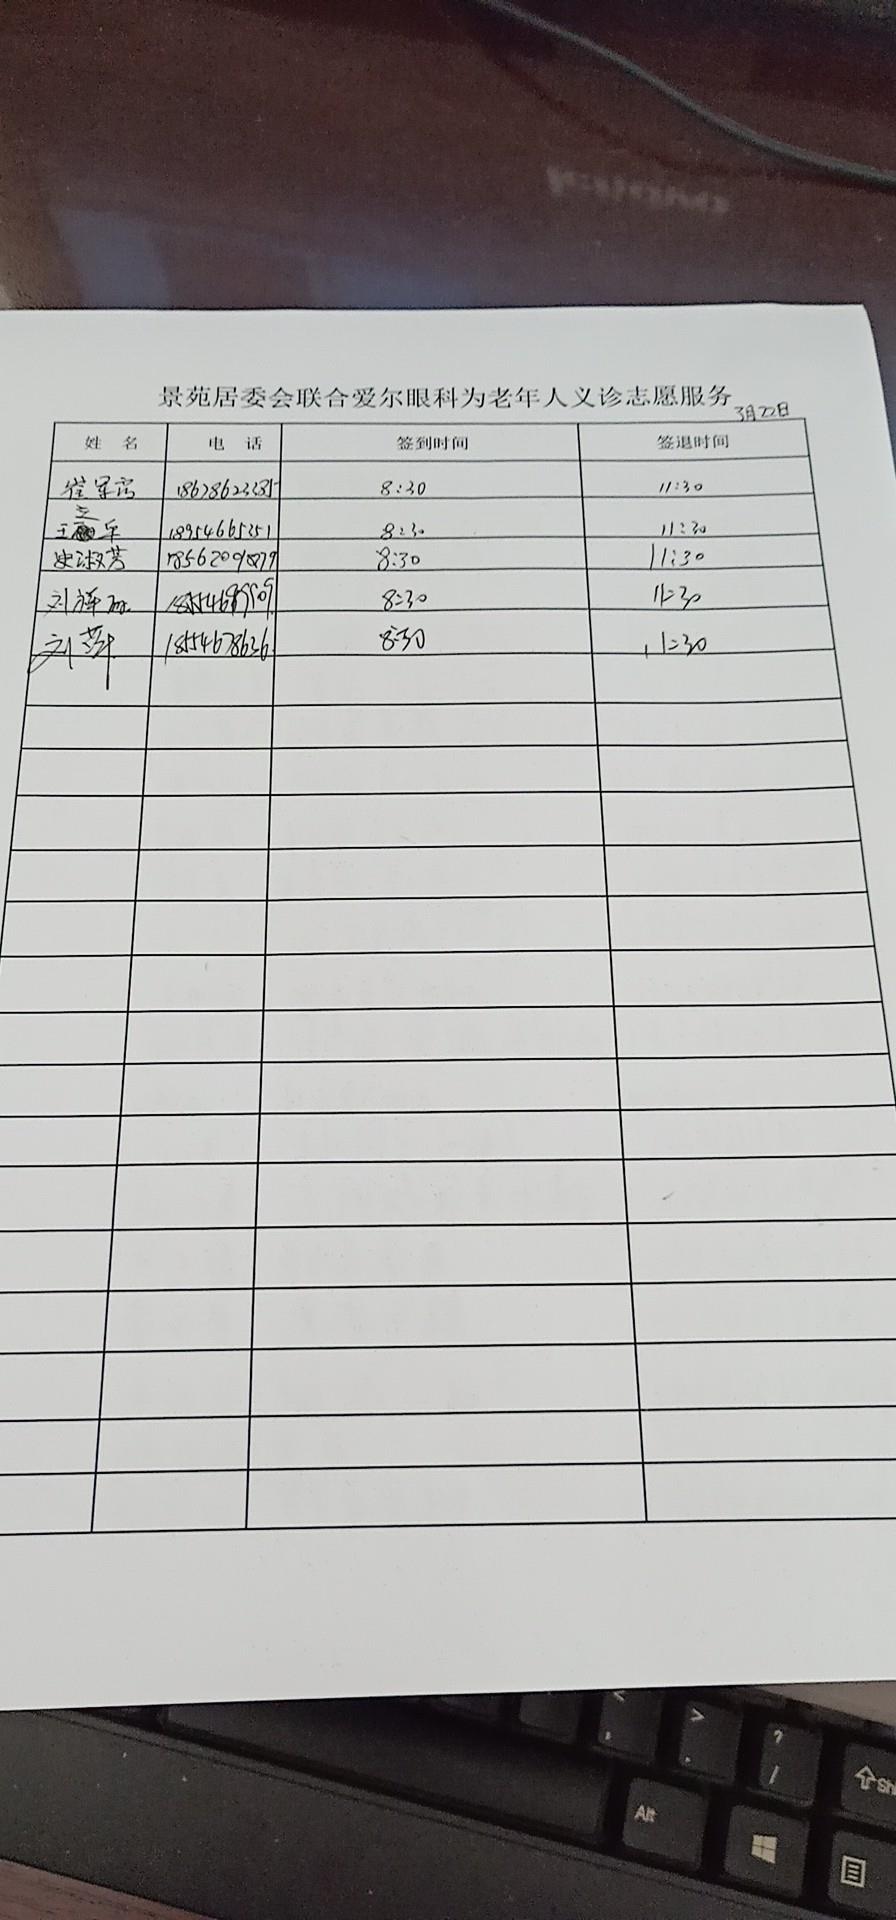 景苑居委会联合爱尔眼科为老年人义诊志愿服务
3月22日
姓 名 电 话 签到时间 签退时间
崔军 18678623385 8:30 11:30
王立军 18954665251 8:30 11:30
史淑芳 18562091879 8:30 11:30
刘祥 8:30 11:30
刘萍 18554678636 8:30 11:30
Alt